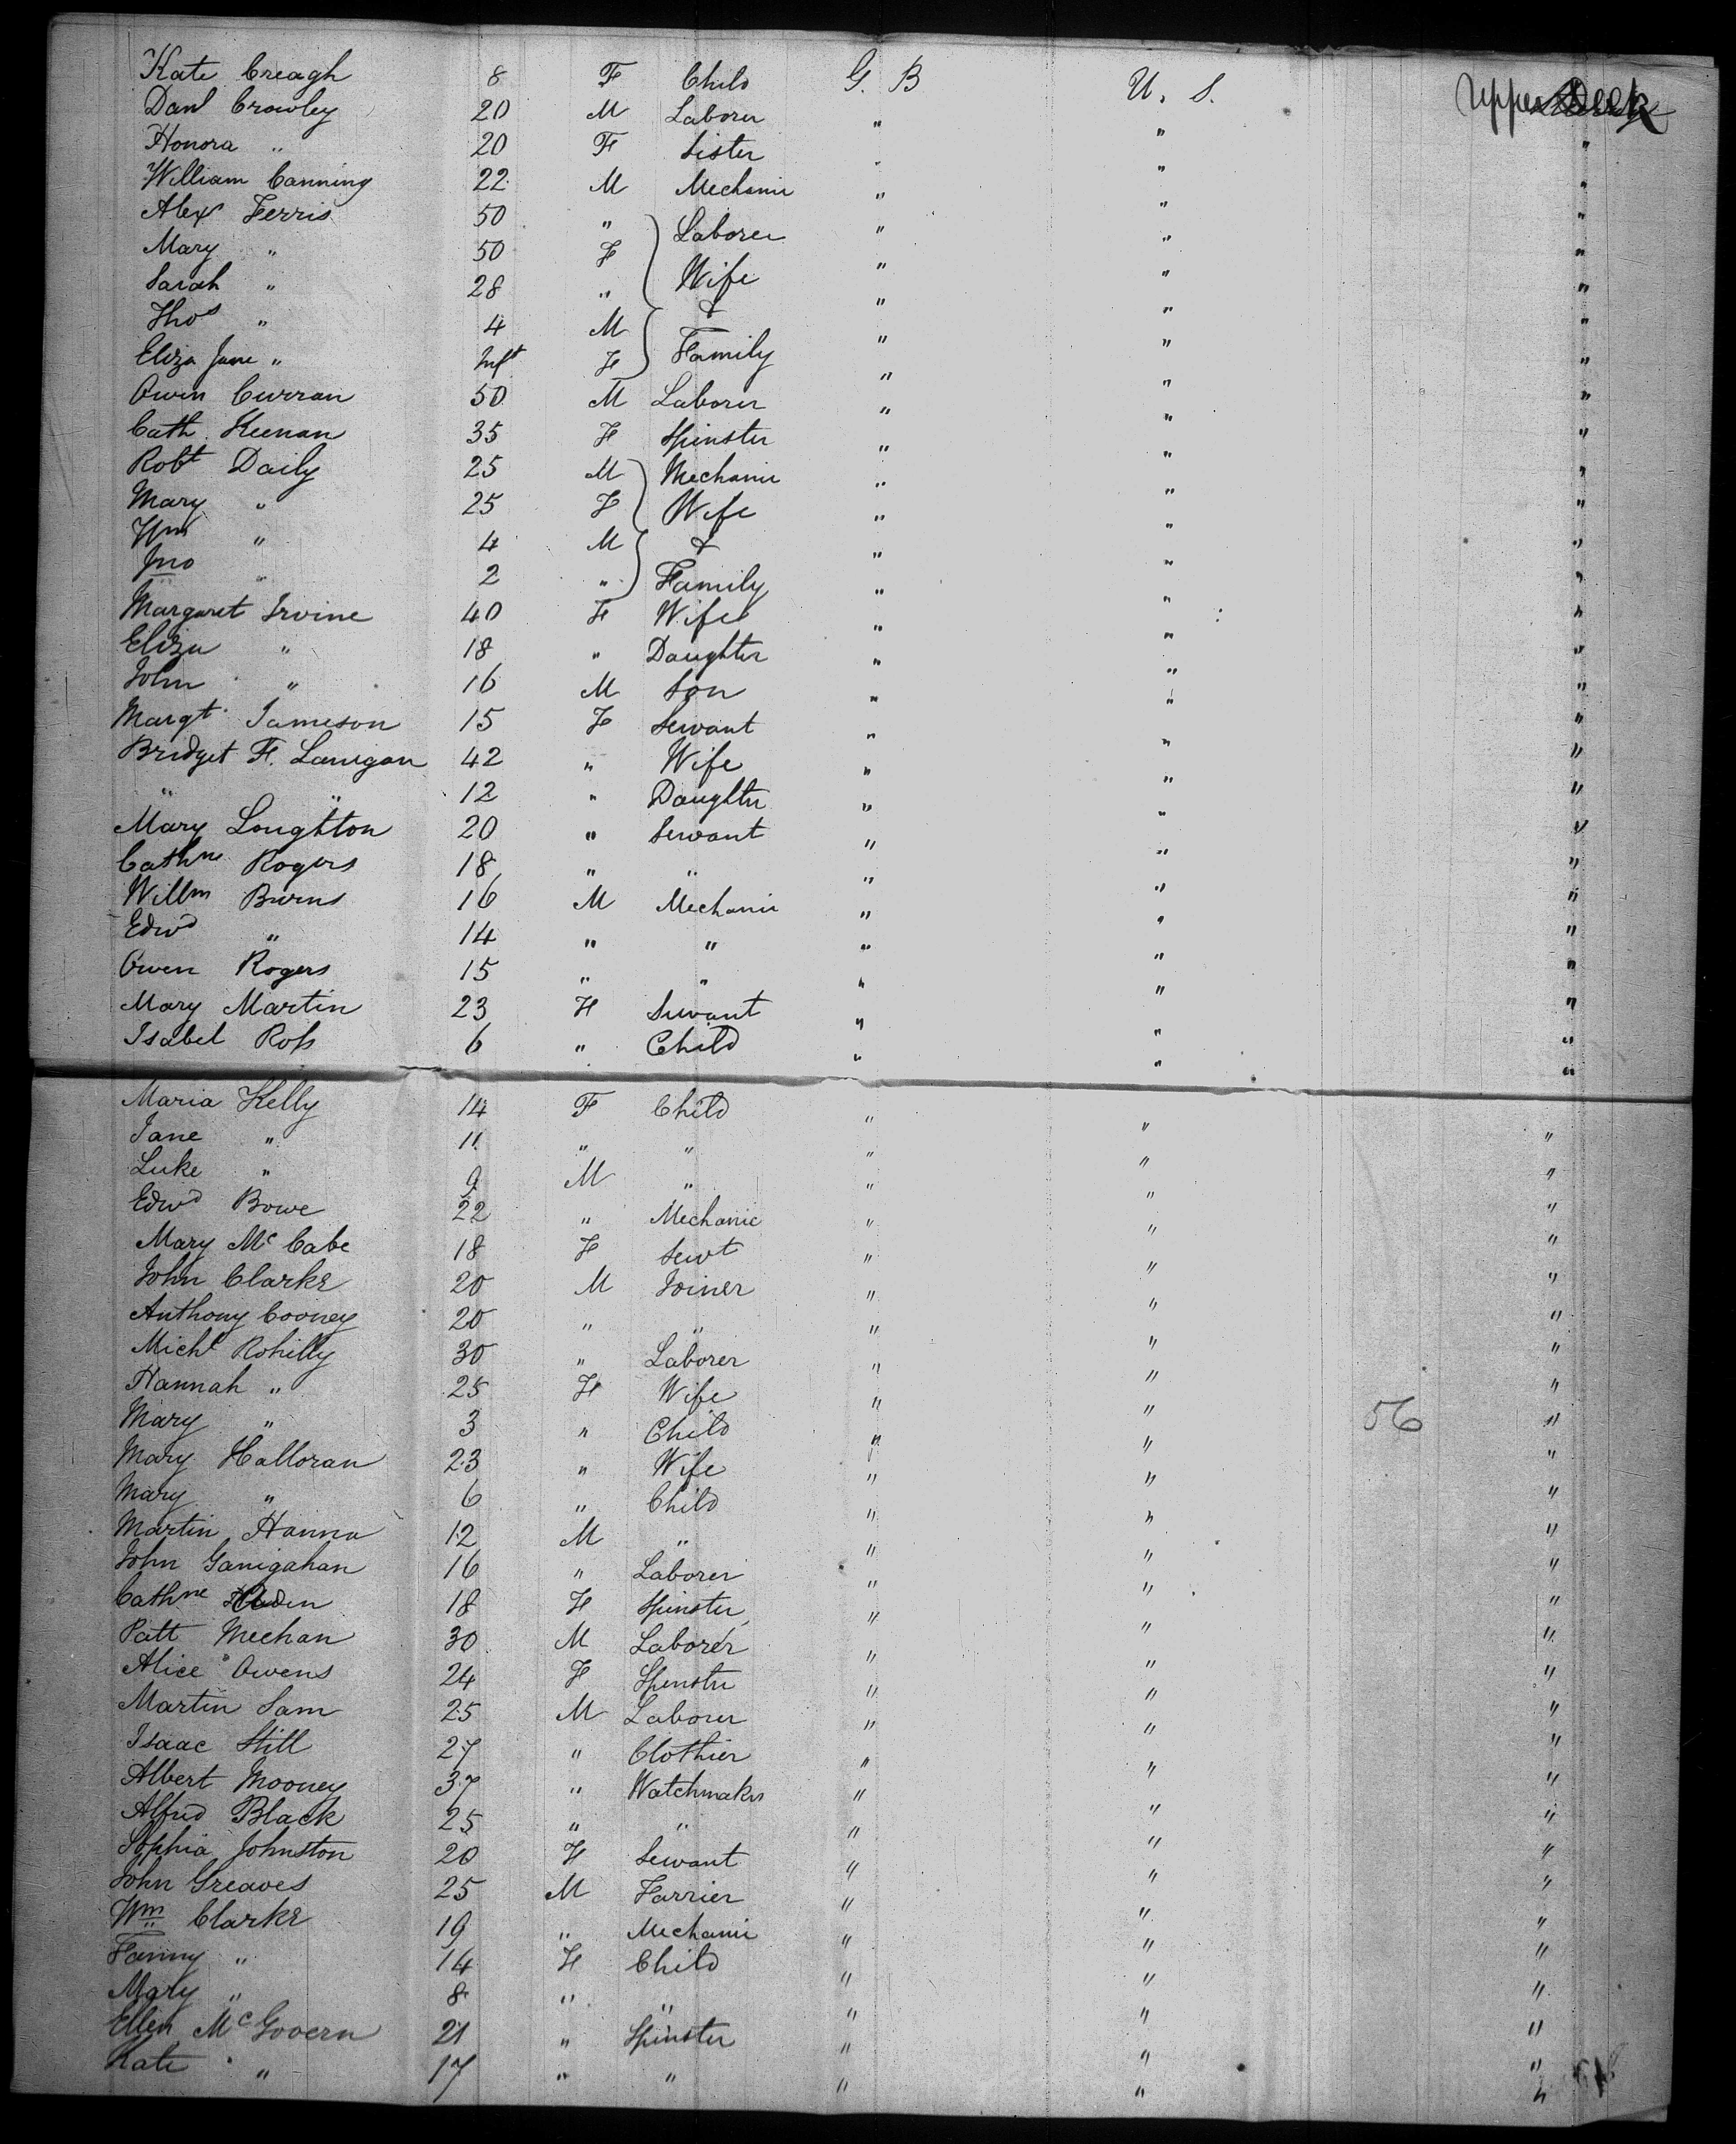 Kate Creagh 8 F Child G. B U. S. Upper Deck
Danl Crowley 20 M Laborer " " "
Honora " 20 F Sister " " "
William Canning 22 M Mechanic " " "
Alexr Ferris 50 " Laborer " " "
Mary " 50 F Wife " " "
Sarah " 28 " & " " "
Thos " 4 M Family " " "
Eliza Jane " Inft F " " "
Owen Curran 50 M Laborer " " "
Cath. Keenan 35 F Spinster " " "
Robt Daily 25 M Mechanic " " "
Mary " 25 F Wife " " "
Wm " 4 M & " " "
Jno " 2 " Family " " "
Margaret Irvine 40 F Wife " " "
Eliza " 18 " Daughter " " "
John " 16 M Son " " "
Margt Jameson 15 F Servant " " "
Bridget F. Lanigan 42 " Wife " " "
" " 12 " Daughter " " "
Mary Loughton 20 " Servant " " "
Cathne Rogers 18 " " " " "
Willm Burns 16 M Mechanic " " "
Edwd " 14 " " " " "
Owen Rogers 15 " " " " "
Mary Martin 23 F Servant " " "
Isabel Ross 6 " Child " " "
Maria Kelly 14 F Child " " "
Jane " 11 " " " " "
Luke " 9 M " " " "
Edwd Bowe 22 " Mechanic " " "
Mary Mc Cabe 18 F Servt " " "
John Clarke 20 M Joiner " " "
Anthony Cooney 20 " " " " "
Michl Rohilly 30 " Laborer " " "
Hannah " 25 F Wife " " "
Mary " 3 " Child " " 56 "
Mary Halloran 23 " Wife " " "
Mary " 6 " Child " " "
Martin Hanna 12 M " " " "
John Ganigahan 16 " Laborer " " "
Cathne 18 F Spinster " " "
Patt Meehan 30 M Laborer " " "
Alice Owens 24 F Spinster " " "
Martin Sam 25 M Laborer " " "
Isaac Still 27 " Clothier " " "
Albert Mooney 37 " Watchmaker " " "
Alfred Black 25 " " " " "
Sophia Johnston 20 F Servant " " "
John Greaves 25 M Farrier " " "
Wm Clarke 19 " Mechanic " " "
Fanny " 14 F Child " " "
Mary " 8 " " " " "
Ellen McGovern 21 " Spinster " " "
Kate " 17 " " " " "